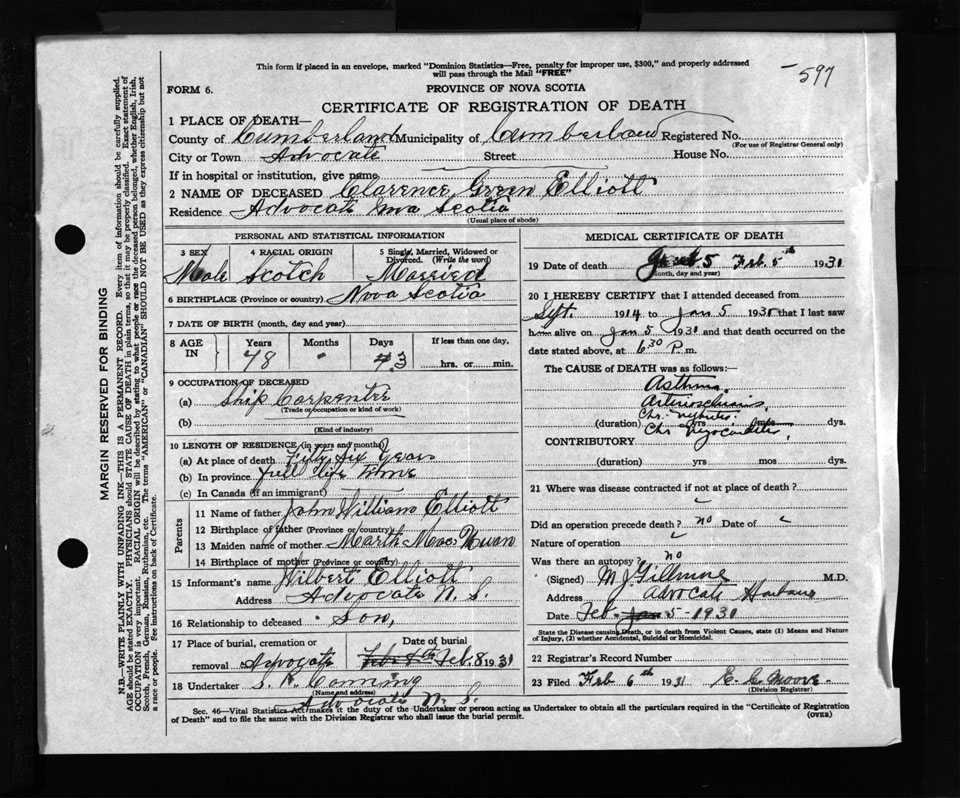 This form if placed in an envelope, marked "Dominion Statistics—Free, penalty for improper use, $300," and properly addressed
will pass through the Mail "FREE"
597
FORM 6.
PROVINCE OF NOVA SCOTIA
CERTIFICATE OF REGISTRATION OF DEATH
1 PLACE OF DEATH—
County of Cumberland Municipality of Cumberland Registered No.
(For use of Registrar General only)
City or Town Advocate Street House No.
If in hospital or institution, give name
2 NAME OF DECEASED Clarence Green Elliott
Residence Advocate Nova Scotia
(Usual place of abode)
PERSONAL AND STATISTICAL INFORMATION
3 SEX 4 RACIAL ORIGIN 5 Single, Married, Widowed or
Divorced. (Write the word)
Male Scotch Married
6 BIRTHPLACE (Province or country) Nova Scotia
7 DATE OF BIRTH (month, day and year)
8 AGE IN Years Months Days If less than one day,
78 3 hrs. or min.
9 OCCUPATION OF DECEASED
(a) Ship Carpenter
(Trade or occupation or kind of work)
(b)
(Kind of industry)
10 LENGTH OF RESIDENCE (in years and months)
(a) At place of death Fifty Six Years
(b) In province full life time
(c) In Canada (if an immigrant)
Parents
11 Name of father John William Elliott
12 Birthplace of father (Province or country)
13 Maiden name of mother
14 Birthplace of mother (Province or country)
15 Informant's name Hilbert Elliott
Address Advocate N. S.
16 Relationship to deceased Son,
17 Place of burial, cremation or Date of burial
removal Advocate Feb. 8 1931
18 Undertaker
(Name and address)
Advocate N. S.
MEDICAL CERTIFICATE OF DEATH
19 Date of death Feb. 5th 1931
(Month, day and year)
20 I HEREBY CERTIFY that I attended deceased from
Sept. 1914 to Jan 5 1931 that I last saw
him alive on Jan 5 1931 and that death occurred on
date stated above, at 6 30 P. m.
The CAUSE of DEATH was as follows:—
Asthma,
Arteriosclerosis,
Chr. nephritis
(duration) yrs mos dys.
Chr. myocarditis,
CONTRIBUTORY
(duration) yrs mos dys.
21 Where was disease contracted if not at place of death?
Did an operation precede death? no Date of
Nature of operation
Was there an autopsy? no
(Signed) M J Gillmore M.D.
Address Advocate Harbour
Date Feb. Jan 5 - 1931
State the Disease causing Death, or in death from Violent Causes, state (1) Means and Nature
of Injury, (2) whether Accidental, Suicidal or Homicidal.
22 Registrar's Record Number
23 Filed Feb 6th 1931 Moore
(Division Registrar)
Sec. 46—Vital Statistics Act makes it the duty of the Undertaker or person acting as Undertaker to obtain all the particulars required in the "Certificate of Registration
of Death" and to file the same with the Division Registrar who shall issue the burial permit.
(OVER)
MARGIN RESERVED FOR BINDING
N.B.—WRITE PLAINLY WITH UNFADING INK—THIS IS A PERMANENT RECORD. Every item of information should be carefully supplied.
AGE should be stated EXACTLY. PHYSICIANS should STATE CAUSE OF DEATH in plain terms, so that it may be properly classified. Exact statement of
OCCUPATION is very important. RACIAL ORIGIN will be described by stating to what people or race the deceased person belonged, whether English, Irish,
Scotch, French, German, Russian, Ruthenian, etc. The terms "AMERICAN" or "CANADIAN" SHOULD NOT BE USED as they express citizenship but not
a race or people. See instructions on back of Certificate.